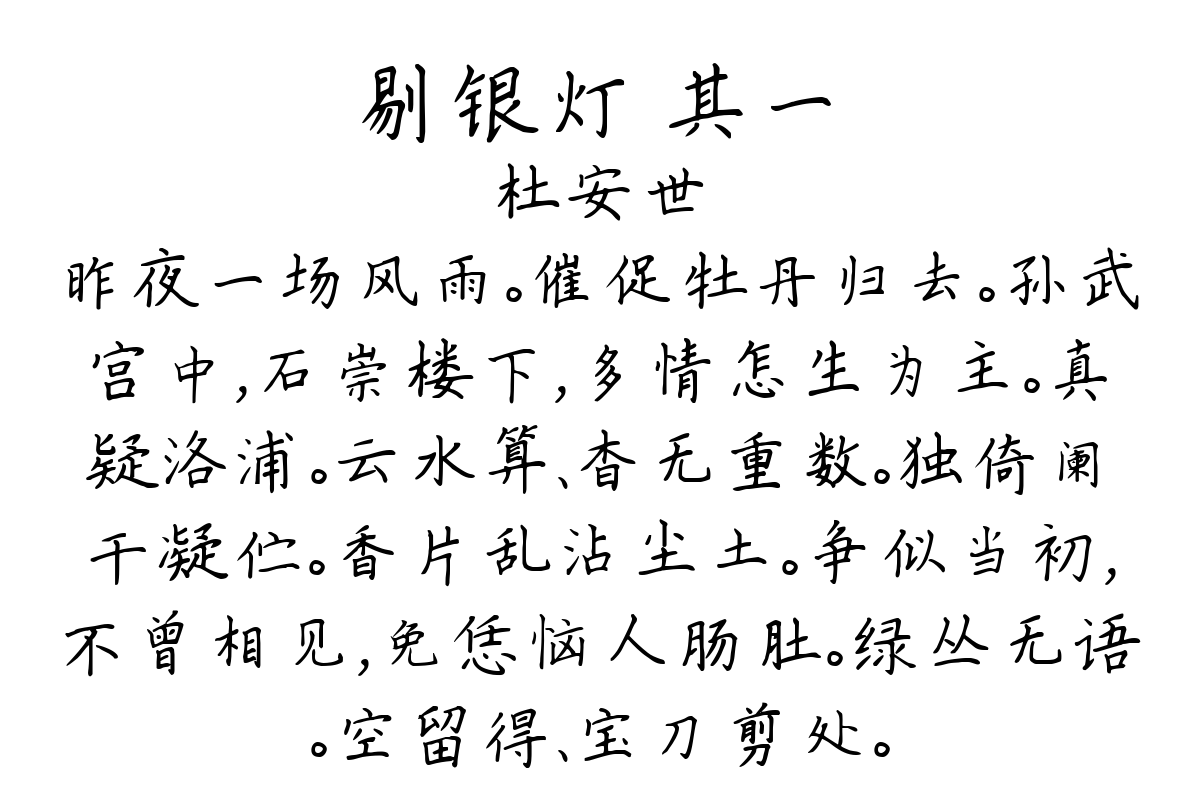 剔银灯 其一
杜安世
昨夜一场风雨。催促牡丹归去。孙武
宫中,石崇楼下,多情怎生为主。真
疑洛浦。云水算、杳无重数。独倚阑
干凝伫。香片乱沾尘土。争似当初,
不曾相见,免恁恼人肠肚。绿丛无语
。空留得、宝刀剪处。